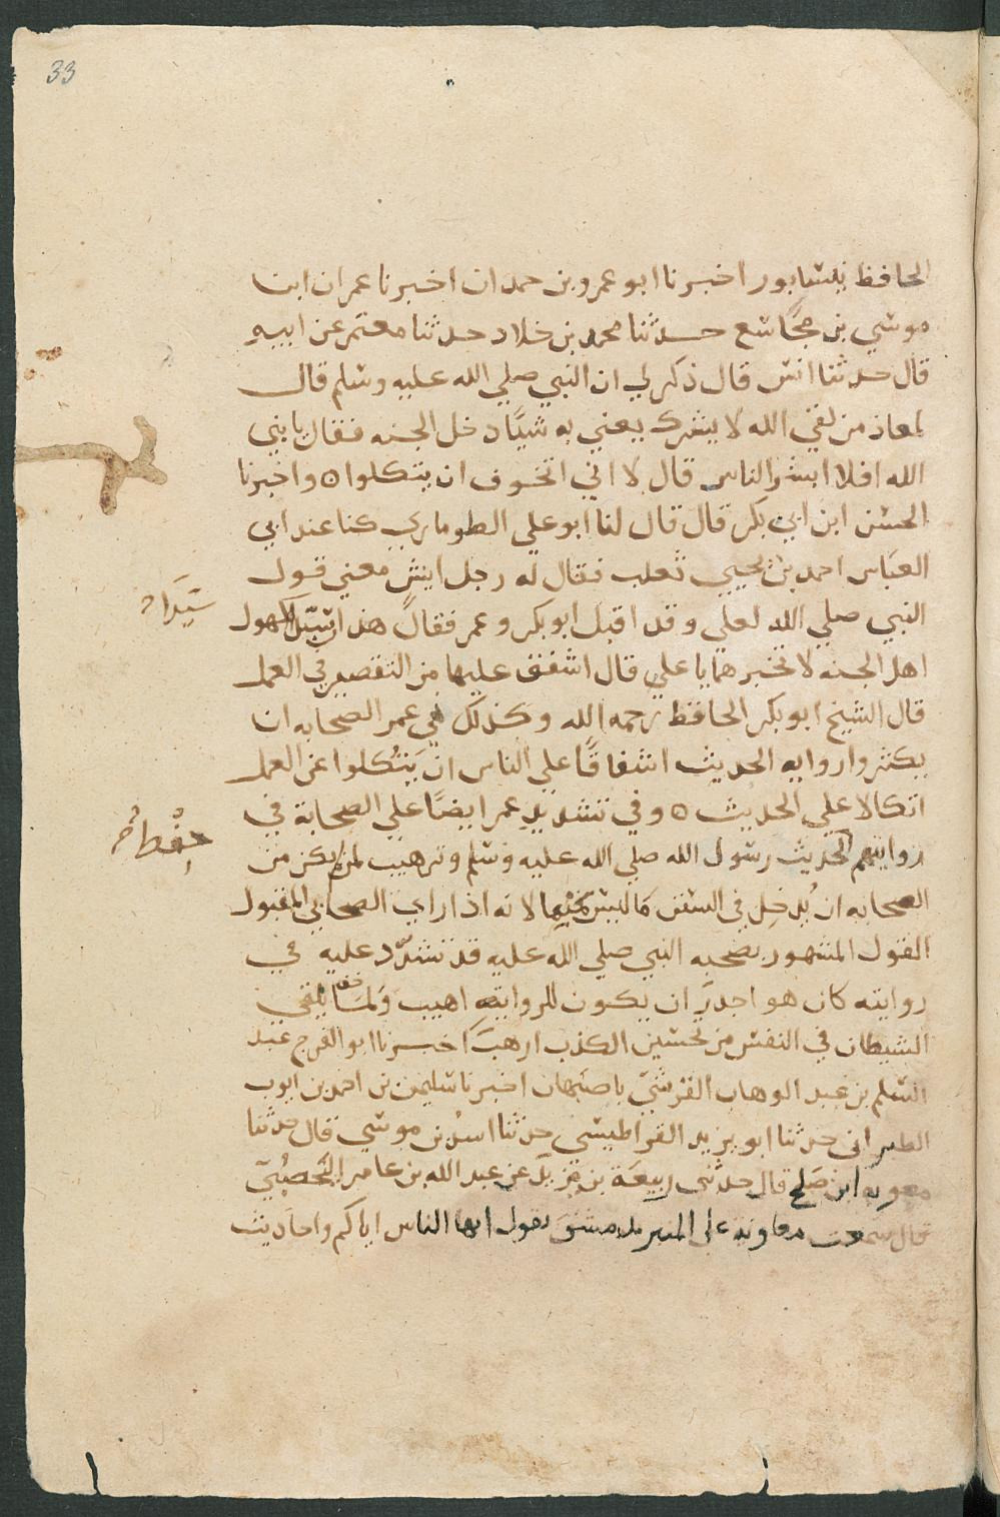 33
الحافظ بنيسابور اخبرنا ابو عمرو بن حمدان اخبرنا عمران ابن
موسي بن مجاشع حدثنا محمد بن خلاد حدثنا معتمر عن ابيه
قال حدثنا انس قال ذكر لي ان النبي صلي الله عليه وسلم قال
لمعاذ من لقي الله لا يشرك يعني به شيًا دخل الجنه فقال يا نبي
الله افلا ابشر الناس قال لا اني اتخوف ان يتكلوا ه واخبرنا
الحسن ابن ابي بكر قال قال لنا ابو علي الطوماري كنا عند ابي
العباس احمد بن يحيي ثعلب فقال له رجل ايش معني قول
النبي صلي الله لعلي وقد اقبل ابو بكر وعمر فقال هذان سيدا كهول
سَيّدا
اهل الجنه لا تخبرهما يا علي قال اشفق عليهما من التقصير في العمل
قال الشيخ ابو بكر الحافظ رحمه الله وكذلك نهي عمر الصحابه ان
يكثروا روايه الحديث اشفاقًا علي الناس ان يَتكلوا عن العمل
اتكالا علي الحديث ه وفي تشديد عمر ايضًا علي الصحابة في
روايتهم الحديث رسول الله صلي الله عليه وسلم وترهيب لمن لم يكن من
حِفْظ
الصحابه ان يُدخِل في السنن مَا ليس مِنها لانه اذا راي الصحابي المقبول
القول المشهور بصحبه النبي صلي الله عليه قد تشدّد عليه في
روايته كان هو اجدرَ ان يكون للروايته اهيب وَلما يلقي
الشيطان في النفس من تحسين الكذب ارهبَ اخبرنا ابو الفرج عبد
السلم بن عبد الوهاب القرشيّ باصبهان اخبرنا سليمن بن احمد بن ايوب
الطبراني حدثنا ابو يزيد القراطيسي حدثنا اسدُ بن موسي قال حدثنا
معوية ابن صَلح قال حدثني ربيعَة بن يزيد عن عبد الله بن عامر اليَحصُبيّ
قال سمعت معاوية على المنبر بدمشق يقول ايها الناس اياكم واحاديث